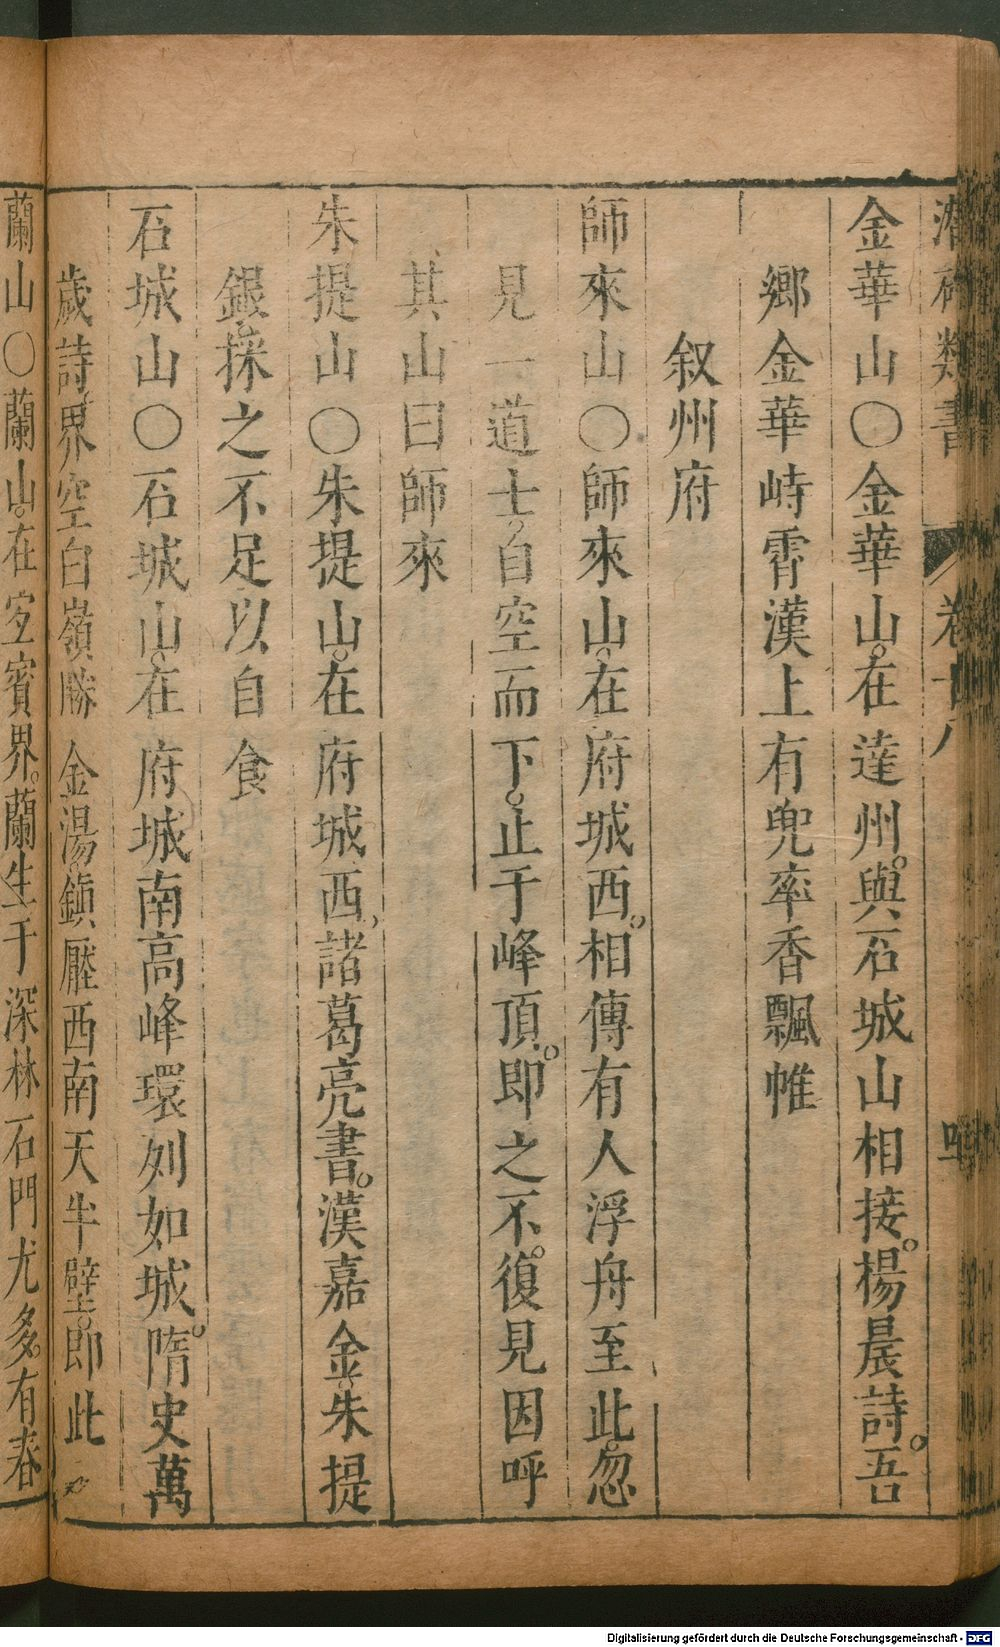 潛確類書 卷十八
金華山〇金華山在達州與石城山相接楊晨詩吾
鄉金華峙霄漢上有兜率香飄帷
叙州府
師來山〇師來山在府城西相傳有人浮舟至此忽
見一道士自空而下止于峰頂即之不復見因呼
其山曰師來
朱提山〇朱提山在府城西諸葛亮書漢嘉金朱提
銀採之不足以自食
石城山〇石城山在府城南高峰環列如城隋史萬
歲詩界空白嶺勝金湯鎮壓西南天半壁即此
蘭山〇蘭山在宜賓界蘭生于深林石門尤多有春
Digitalisierung gefördert durch die Deutsche Forschungsgemeinschaft - DFG